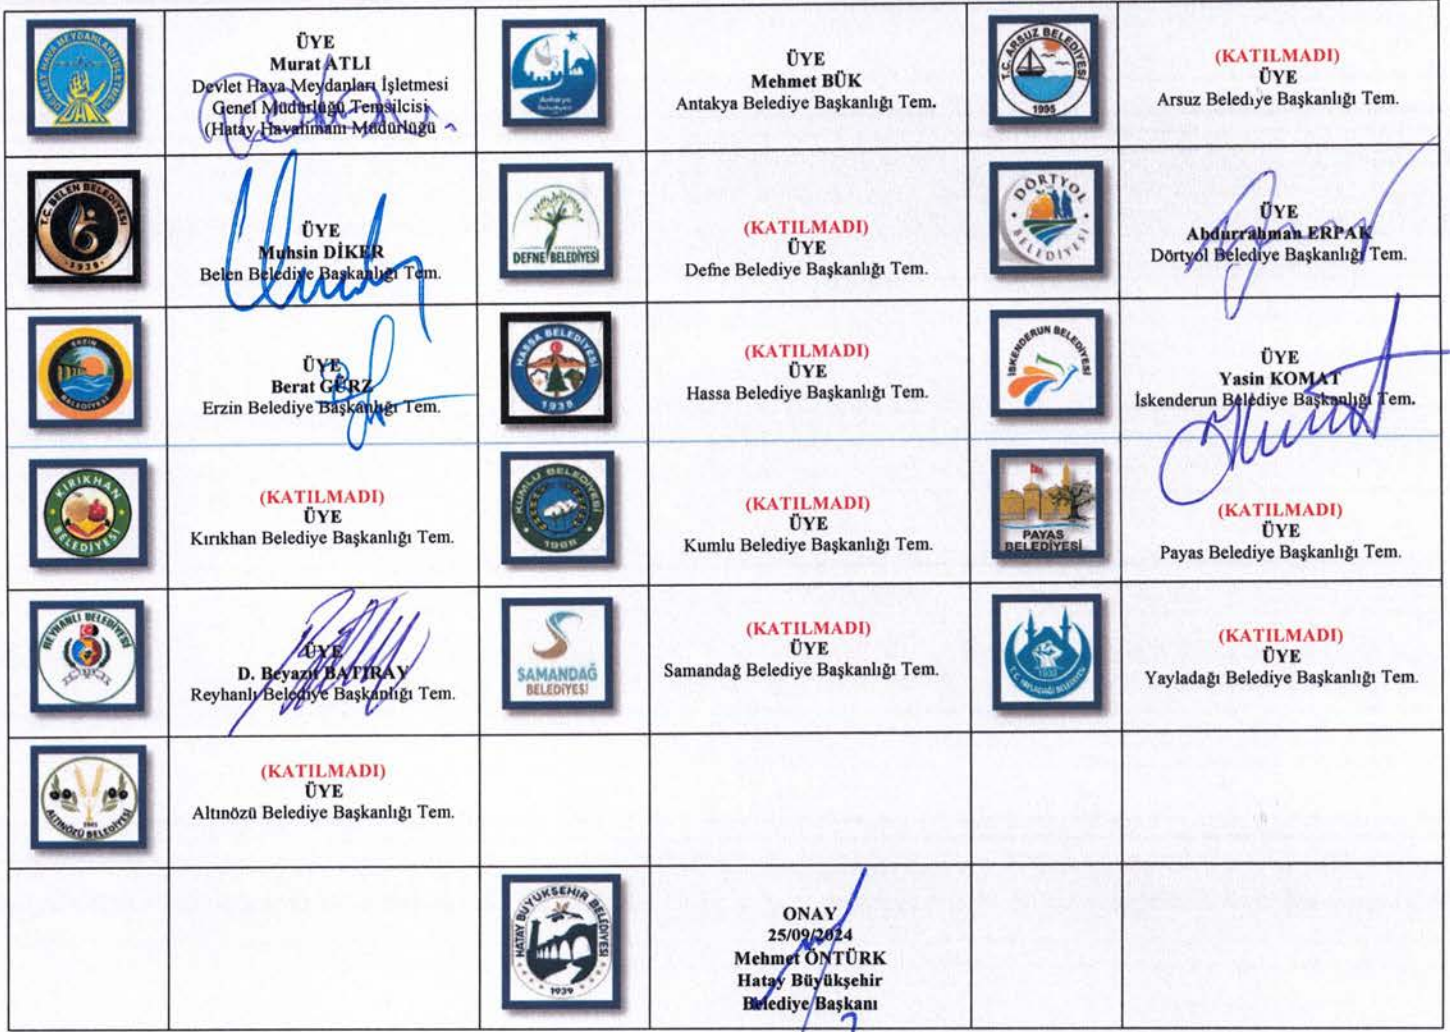 DEVLET HAVA MEYDANLARI İŞLETMESİ
DHMİ
ÜYE
Murat ATLI
Devlet Hava Meydanları İşletmesi
Genel Müdürlüğü Temsilcisi
(Hatay Havalimanı Müdürlüğü
Antakya
Belediyesi
ÜYE
Mehmet BÜK
Antakya Belediye Başkanlığı Tem.
T.C. ARSUZ BELEDİYESİ
1995
(KATILMADI)
ÜYE
Arsuz Belediye Başkanlığı Tem.
T.C. BELEN BELEDİYESİ
1939
ÜYE
Muhsin DİKER
Belen Belediye Başkanlığı Tem.
DEFNE BELEDİYESİ
(KATILMADI)
ÜYE
Defne Belediye Başkanlığı Tem.
DÖRTYOL
BELEDİYESİ
ÜYE
Abdurrahman ERPAK
Dörtyol Belediye Başkanlığı Tem.
ERZİN
BELEDİYESİ
ÜYE
Berat GÜRZ
Erzin Belediye Başkanlığı Tem.
HASSA BELEDİYESİ
1938
(KATILMADI)
ÜYE
Hassa Belediye Başkanlığı Tem.
İSKENDERUN BELEDİYESİ
ÜYE
Yasin KOMAT
İskenderun Belediye Başkanlığı Tem.
KIRIKHAN
BELEDİYESİ
(KATILMADI)
ÜYE
Kırıkhan Belediye Başkanlığı Tem.
KUMLU BELEDİYESİ
(KATILMADI)
ÜYE
Kumlu Belediye Başkanlığı Tem.
PAYAS
BELEDİYESİ
(KATILMADI)
ÜYE
Payas Belediye Başkanlığı Tem.
REYHANLI BELEDİYESİ
ÜYE
D. Beyazıt BATIRAY
Reyhanlı Belediye Başkanlığı Tem.
SAMANDAĞ
BELEDİYESİ
(KATILMADI)
ÜYE
Samandağ Belediye Başkanlığı Tem.
T.C. YAYLADAĞI BELEDİYESİ
(KATILMADI)
ÜYE
Yayladağı Belediye Başkanlığı Tem.
ALTINÖZÜ BELEDİYESİ
(KATILMADI)
ÜYE
Altınözü Belediye Başkanlığı Tem.
HATAY BÜYÜKŞEHİR BELEDİYESİ
1939
ONAY
25/09/2024
Mehmet ÖNTÜRK
Hatay Büyükşehir
Belediye Başkanı